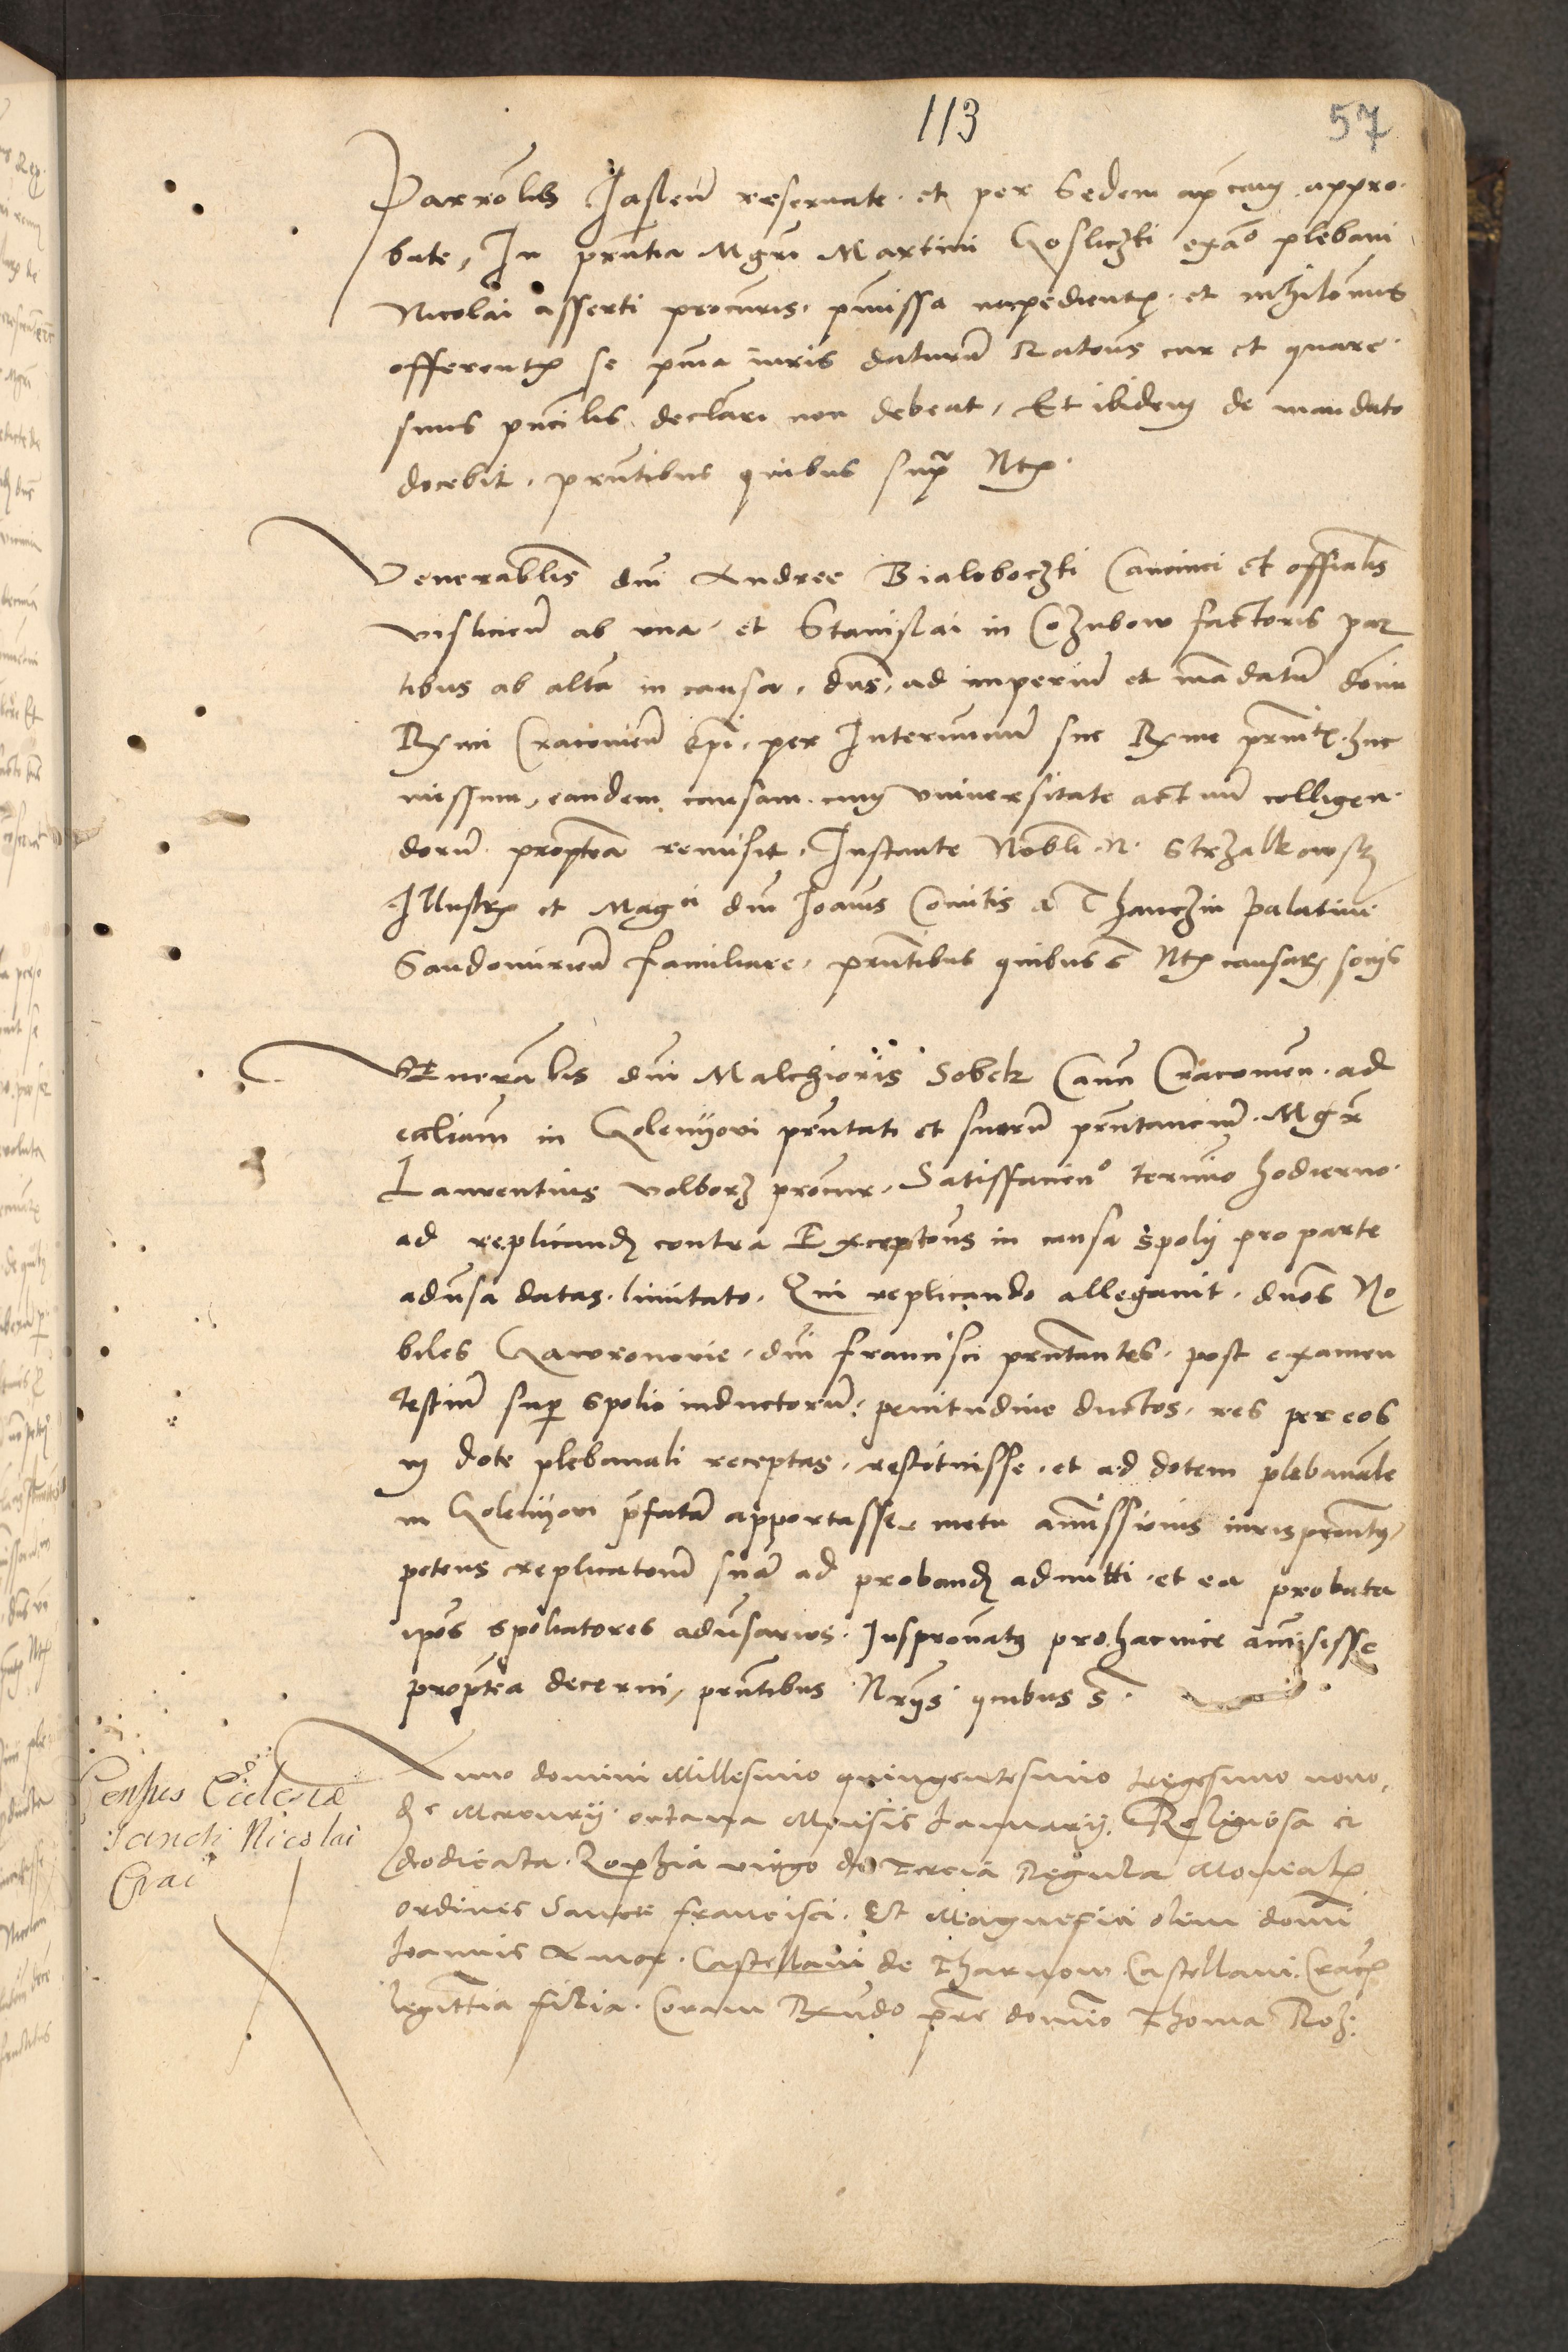 113
57
Parrolis Jaslen reservate et per Sedem aplicam appro
bate, In pntia Mgri Martini Gosliczki ex adº plebani
Nicolai asserti procuris, pmissa impedientis et nihilomnus
offerentis se pma iuris daturu Ratones cur et quare
simus pncilis declari non debeat, Et ibidem de mandato
docebit, pntibus quibus supra Ntis
Venerablis dni Andree Bialoboczki Canonici et offialis
vislicien ab una et Stanislai in Cozubow factoris par
tibus ab alta in causa, dns, ad imperiu et mandatu domi
Rxmi Cracovien Epi per Internunciu sue Rxme pnitis huc
missum, eandem causam cum universitate actuu colligen
doru proptea remisit, Instante Nobli N. Strzalkowsky
Illustris et Magci dni Joanis Comitis a Thanczin Palatini
Sandomirien familiare, pntibus quibus s Ntis causar sociis
Venerablis dni Malchioris Sobek Canci Cracovien ad
ecaliam in Goleniovi pntati et suoru pntanciu Mgr
Laurentius Volborz procur, Satisfaciendº termino hodierno
ad replicand contra Exceptones in causa Spolii pro parte
adusa datas limitato, Qui replicando allegavit, dnos No
biles Gawronovie, dni Francisci pntantes, post examen
testiu sup spolio inductoru, penitudine ductos, res per eos
in dote plebanali receptas, restituisse, et ad dotem plebanale
in Goleniovi pfata apportasse metu amissionis iurispronatus
petens replicatonem sua ad proband admitti et ea probata
ipos spoliatores adusarios Juspronatus pro hac vice amisisse
proptea decerni, pntibus Nriis quibus s.
Census Eccleslæ
Sancti Nicolai
Crac
Anno domini Millesimo quingentesimo tregesimo nono,
die Mercurii octava Mensis Januarii, Religiosa et
deodicata Zophia virgo de tercia Regula Monealis
ordines Sancte francisci Et Magnefici olim domi
Joannis Amor Castellani de Tharnow Castellani Crac
legittia filia Coram Rxndo pre domino Thoma Roz: